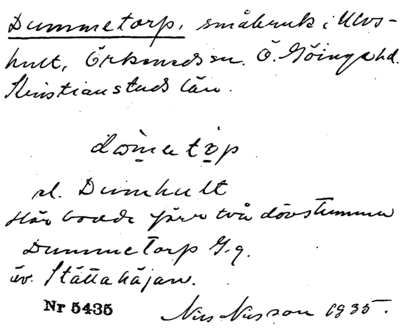 Dummetorp, småbruk i Ulvs-
hult, Örkeneds sn. Ö. Göinge hd.
Kristianstads län.
domatop
el. Dumhult
Här bodde förr två dövstumma
Dummetorp G.g.
äv. Stättahäjan.
Nr 5435 Nils Nilsson 1935.